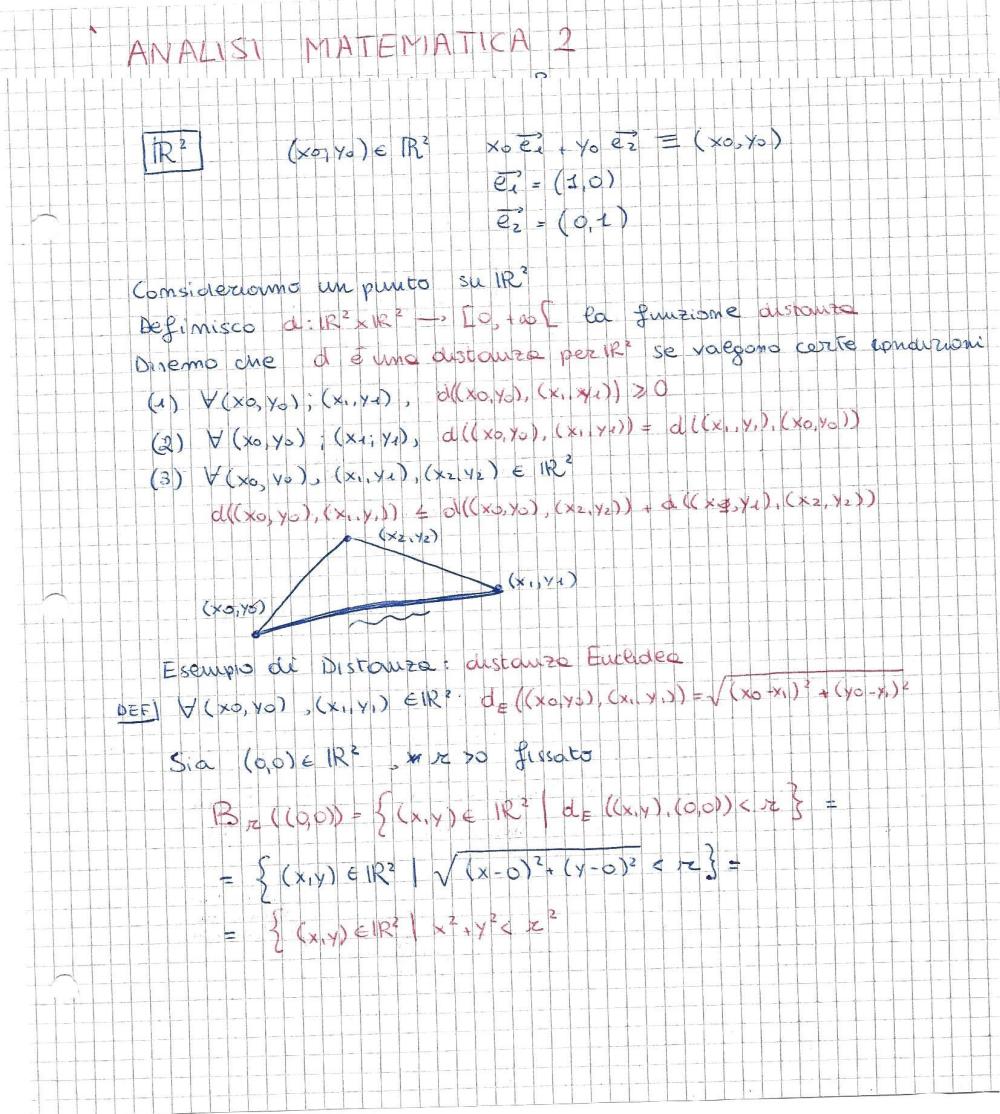 ANALISI MATEMATICA 2
ℝ² (x0,y0) ∈ ℝ² x0 e1→ + y0 e2→ ≡ (x0,y0)
e1→ = (1,0)
e2→ = (0,1)
Consideriamo un punto su ℝ²
Definisco d: ℝ² × ℝ² → [0,+∞[ la funzione distanza
Diremo che d é una distanza per ℝ² se valgono certe condizioni
(1) ∀(x0,y0); (x1,y1), d((x0,y0), (x1,y1)) ⩾ 0
(2) ∀(x0,y0); (x1;y1), d((x0,y0), (x1,y1)) = d((x1,y1),(x0,y0))
(3) ∀(x0,y0), (x1,y1), (x2,y2) ∈ ℝ²
d((x0,y0),(x1,y1)) ≤ d((x0,y0),(x2,y2)) + d((x1,y1),(x2,y2))
(x2,y2)
(x1,y1)
(x0,y0)
Esempio di Distanza: distanza Euclidea
DEF] ∀(x0,y0), (x1,y1) ∈ ℝ²: dE((x0,y0),(x1,y1)) = √(x0-x1)² + (y0-y1)²
Sia (0,0) ∈ ℝ², r >0 fissato
Br((0,0)) = {(x,y) ∈ ℝ² | dE((x,y),(0,0)) < r} =
= {(x,y) ∈ ℝ² | √(x-0)² + (y-0)² < r} =
= {(x,y) ∈ ℝ² | x² + y² < r²